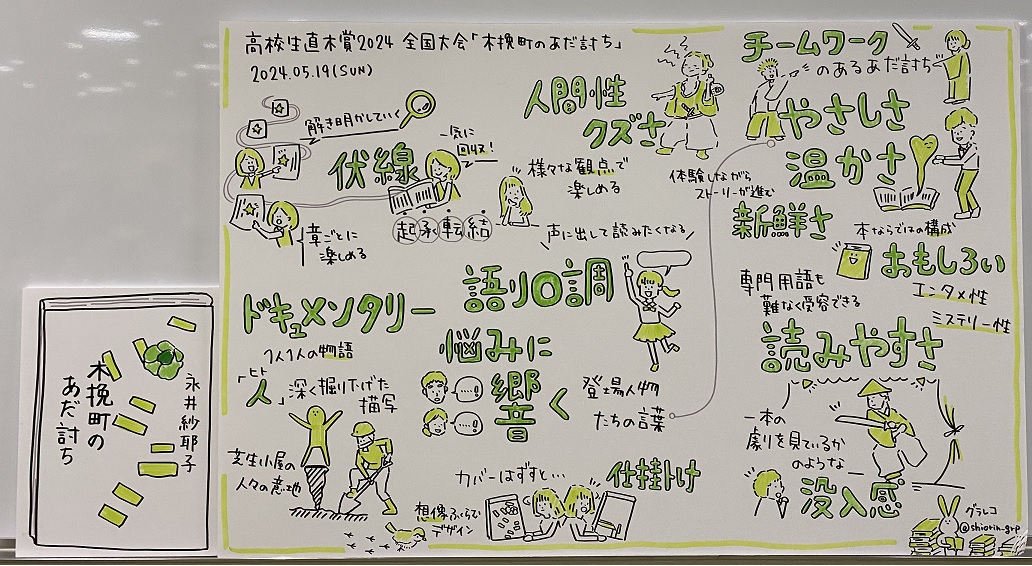 高校生直木賞2024 全国大会「木挽町のあだ討ち」
2024.05.19(SUN)
解き明かしていく
伏線
一気に
回収!
章ごとに
楽しめる
起承転結
人間性
クズさ
様々な観点で
楽しめる
声に出して読みたくなる
語り口調
ドキュメンタリー
1人1人の物語
「人」深く掘り下げた
ヒト
描写
芝生小屋の
人々の意地
悩みに
響く
登場人物
たちの言葉
カバーはずすと…
仕掛けけ
想像ふくらむ
デザイン
チームワーク
のあるあだ討ち
やさしさ
温かさ
体験しながら
ストーリーが進む
新鮮さ
本ならではの構成
おもしろい
エンタメ性
ミステリー性
専門用語も
難なく受容できる
読みやすさ
一本の
劇を見ているか
のような
没入感
グラレコ
@shiorin_grp
木挽町の
あだ討ち
永井紗耶子